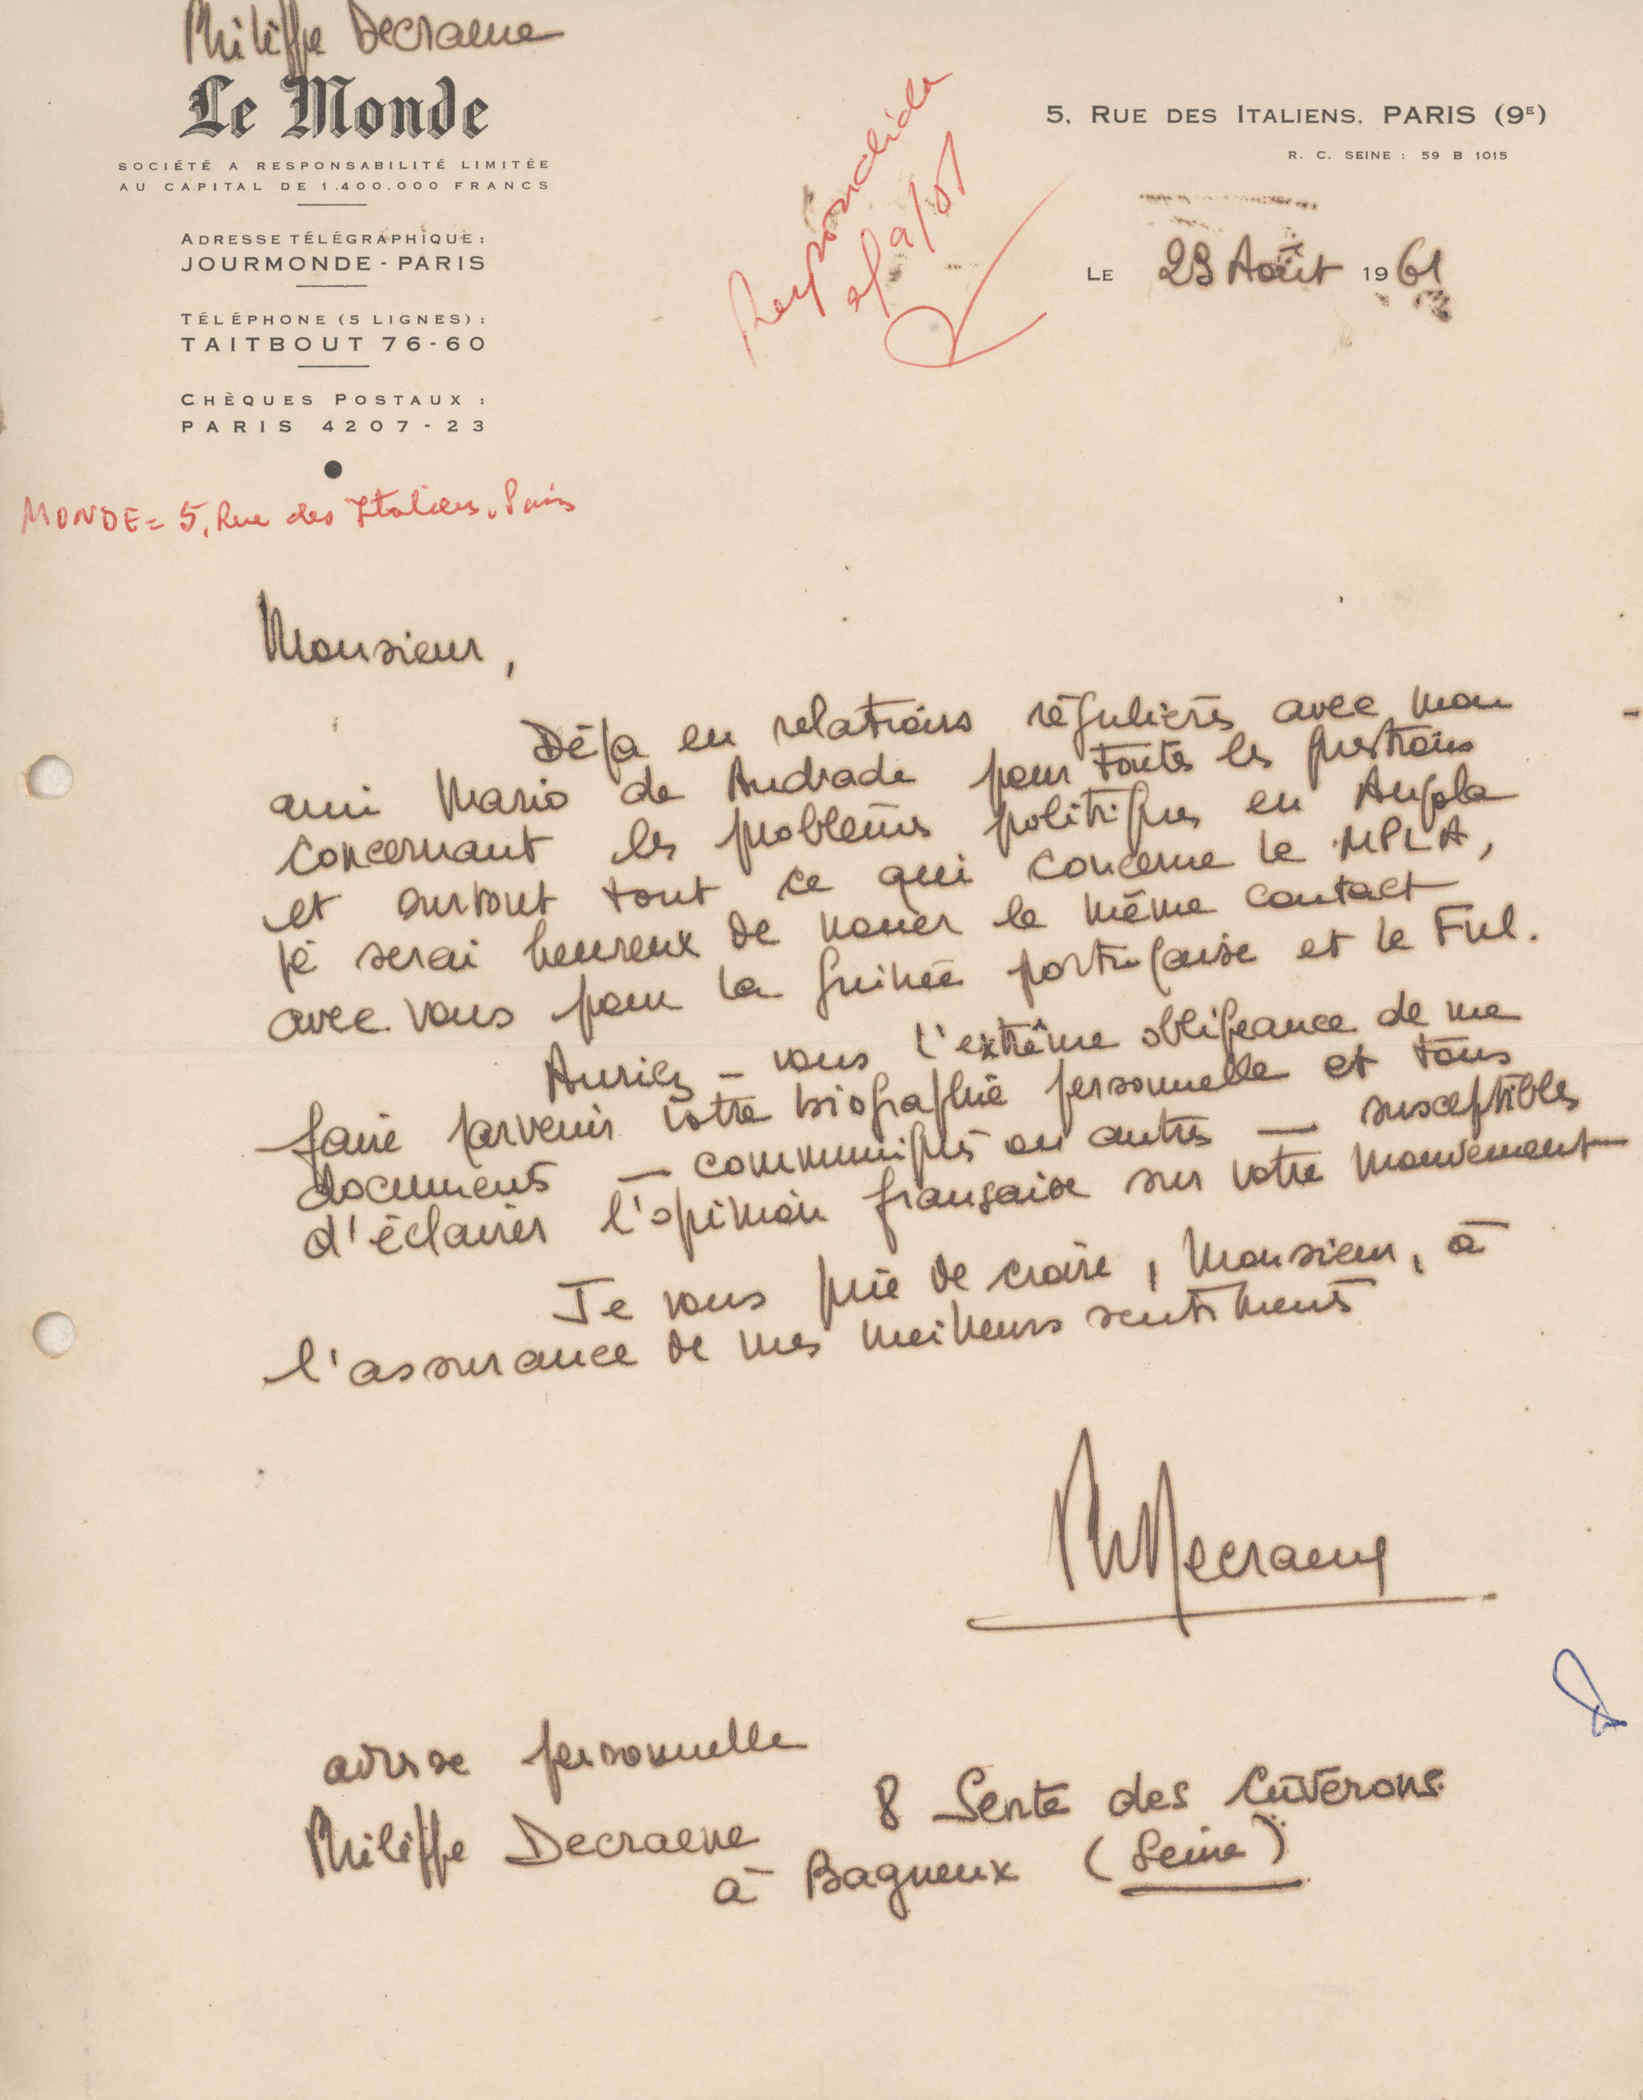 Philippe Decraene
Le Monde
SOCIÉTÉ A RESPONSABILITÉ LIMITÉE
AU CAPITAL DE 1.400.000 FRANCS
ADRESSE TÉLÉGRAPHIQUE :
JOURMONDE - PARIS
TÉLÉPHONE (5 LIGNES) :
TAITBOUT 76-60
CHÈQUES POSTAUX :
PARIS 4207-23
MONDE = 5, Rue des Italiens, Paris
Respondida
5, RUE DES ITALIENS, PARIS (9E)
R. C. SEINE : 59 B 1015
LE 29 Août 1961
Monsieur,
Déjà en relations régulières avec mon
ami Mario de Andrade pour toutes les questions
concernant les problèmes politiques en Angola
et surtout tout ce qui concerne le MPLA,
je serai heureux de nouer le même contact
avec vous pour la Guinée portugaise et le Ful.
Auriez-vous l'extrême obligeance de me
faire parvenir votre biographie personnelle et tous
documents — communiqués ou autres — susceptibles
d'éclairer l'opinion française sur votre mouvement
Je vous prie de croire, Monsieur, à
l'assurance de mes meilleurs sentiments
Ph Decraene
adresse personnelle
Philippe Decraene 8 Sente des Cuverons
à Bagneux (Seine)